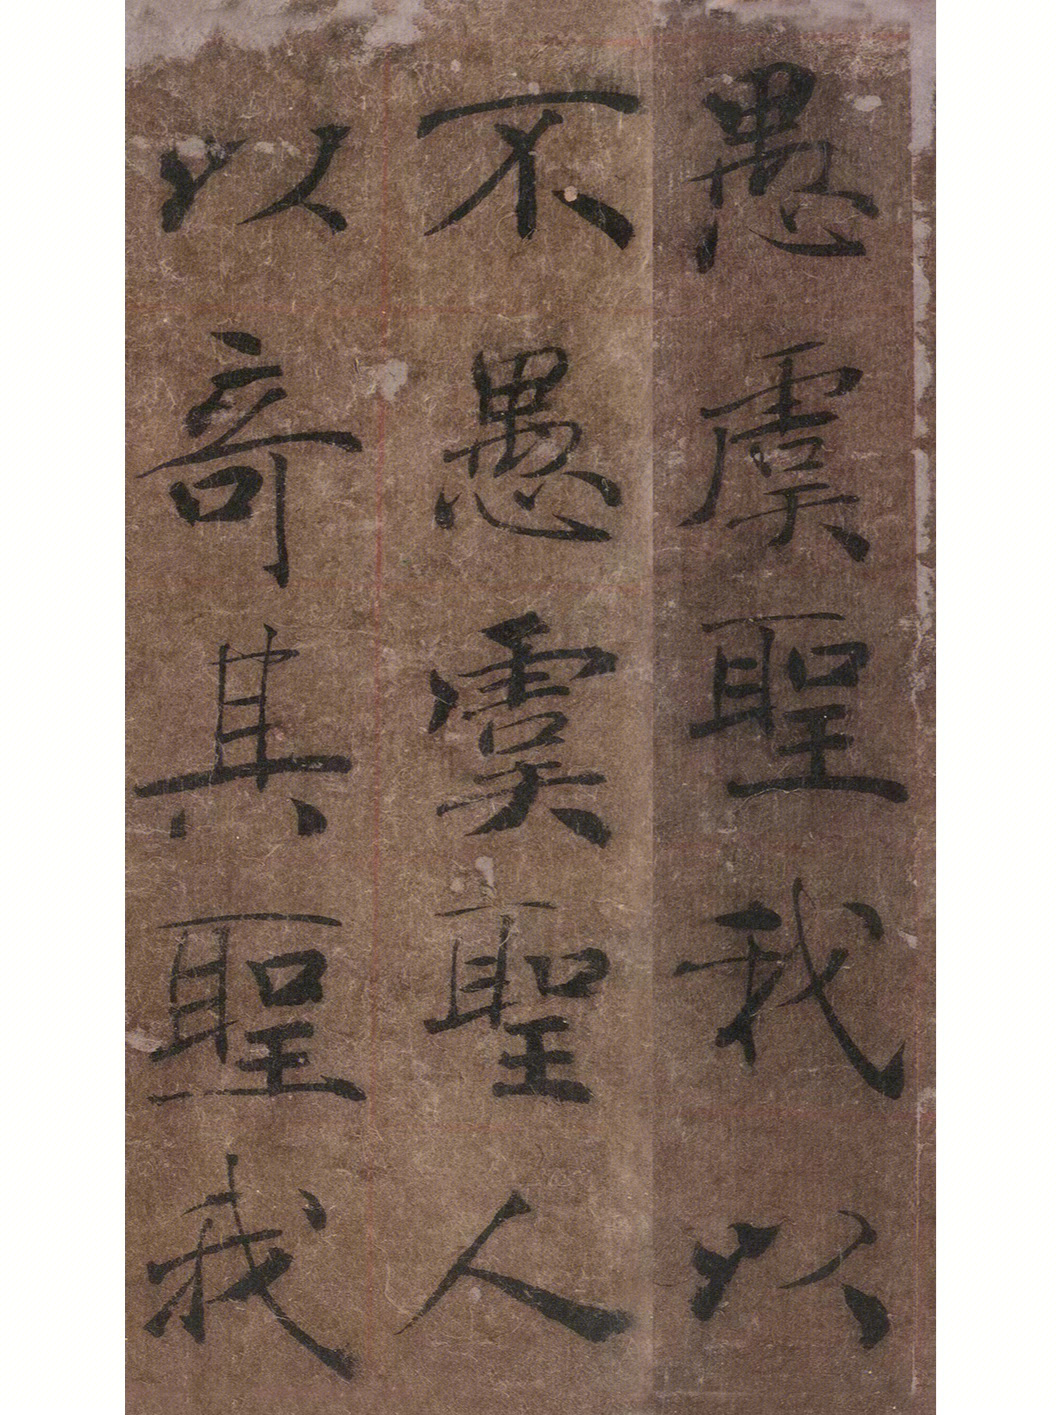 愚虞聖我以
不愚虞聖人
以奇其聖我